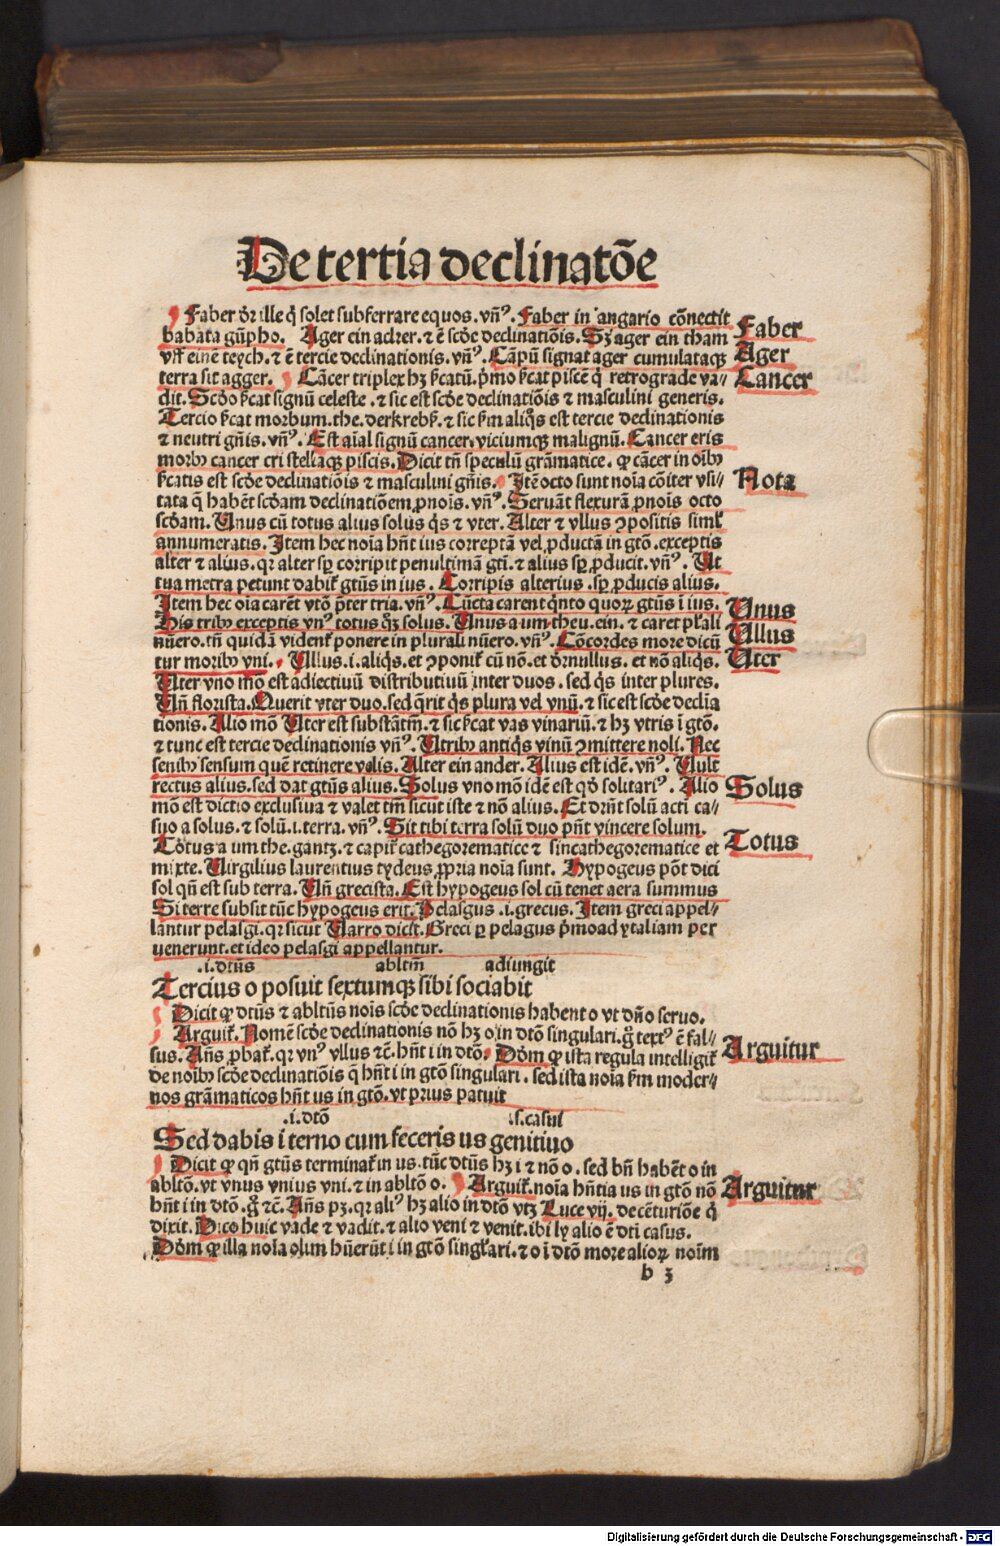 De tertia declinatõe
Faber dr̃ ille q̃ solet subferrare equos. vñꝰ. Faber in angario cõnectit
babata gũpho. Ager ein acker. ⁊ ẽ scðe declinatiõis. Sꝫ ager ein tham
vñ einẽ teych. ⁊ ẽ tercie declinationis. vñꝰ. Cãpũ signat ager cumulataqꝫ
terra sit agger. Cãcer triplex hꝫ ſcatũ. p̃mo ſcat piscẽ q̃ retrograde va//
dit. Scðo ſcat signũ celeste. ⁊ sic est scðe declinatiõis ⁊ masculini generis.
Tercio ſcat morbum. the. der krebſ. ⁊ sic ſm aliq̃s est tercie declinationis
⁊ neutri gñis. vñꝰ. Est aĩal signũ cancer. viciumqꝫ malignũ. Cancer eris
morbꝫ cancer cri stellaqꝫ piscis. Dicit tñ speculũ grãmatice. qꝫ cãcer in oĩbꝫ
ſcatis est scðe declinatiõis ⁊ masculini gñis. Itẽ octo sunt noĩa cõiter vsi//
tata q̃ habẽt scðam declinatiõem ꝓnoĩs. vñꝰ. Seruãt flexurã ꝓnoĩs octo
scðam. Unus cũ totus alius solus q̃s ⁊ vter. Alter ⁊ vllus ꝯpositis siml̃
annumeratis. Item hec noĩa hñt ius correptã vel ꝓductã in gtõ. exceptis
alter ⁊ alius. qꝛ alter sꝑ corripit penultimã gtĩ. ⁊ alius sꝑ ꝓducit. vñꝰ. Ut
tua metra petunt dabit̃ gtũs in ius. Corripis alterius. sꝑ ꝓducis alius.
Item hec oĩa carẽt vtõ p̃ter tria. vñꝰ. Cũcta carent q̃nto quoꝝ gtũs ĩ ius.
His tribꝫ exceptis vnꝰ totus q̃ꝫ solus. Unus a um the. u. ein. ⁊ caret pl̃ali
nũero. tñ quidã vident̃ ponere in plurali nũero. vñꝰ. Cõcordes more dicũ
tur moribꝫ vni. Ullus. i. aliq̃s. et ꝯponit̃ cũ nõ. et dr̃ nullus. et nõ aliq̃s.
Uter vno mõ est adiectiuũ distributiuũ inter duos. sed q̃s inter plures.
Uñ florista. Querit vter duo. sed q̃rit q̃s plura vel vnũ. ⁊ sic est scðe declia
tionis. Alio mõ Uter est substãtm̃. ⁊ sic ſcat vas vinariũ. ⁊ hꝫ vtris ĩ gtõ.
⁊ tunc est tercie declinationis vñꝰ. Utribꝫ antiq̃s vinũ ꝯmittere noli. Nec
senibꝫ sensum quẽ retinere velis. Alter ein ander. Alius est idẽ. vñꝰ. Uult
rectus alius. sed dat gtũs alius. Solus vno mõ idẽ est qð solitariꝰ. Alio
mõ est dictio exclusiua ⁊ valet tm̃ sicut iste ⁊ nõ alius. Et dr̃nt solũ acti ca//
suo a solus. ⁊ solũ. i. terra. vñꝰ. Sit tibi terra solũ duo pñt vincere solum.
Tõtus a um the. gantꝫ. ⁊ capit̃ cathegorematice ⁊ sincathegorematice et
mixte. Uirgilius laurentius tydeus ꝓpria noĩa sunt. Hypogeus põt dici
sol qñ est sub terra. Uñ grecista. Est hypogeus sol cũ tenet aera summus
Si terre subsit tũc hypogeus erit. Pelasgus. i. grecus. Item greci appel//
lantur pelasgi. qꝛ sicut Uarro dicit. Greci ꝑ pelagus p̃mo ad ytaliam per
venerunt. et ideo pelasgi appellantur.
.i. dtũs abltm̃ adiungit
Tercius o posuit sextumqꝫ sibi sociabit
Dicit qꝫ dtũs ⁊ abltũs noĩs scðe declinationis habent o vt dño seruo.
Arguit̃. Nomẽ scðe declinationis nõ hꝫ o in dtõ singulari. g̃ textꝰ ẽ fal//
sus. Añs ꝓbat̃. qꝛ vnꝰ vllus ⁊c̃. hñt i in dtõ. Dõm qꝫ ista regula intelligit̃
de noĩbꝫ scðe declinatiõis q̃ hñt i in gtõ singulari. sed ista noĩa ſm moder//
nos grãmaticos hñt us in gtõ. vt prius patuit
.i. dtõ .s. casui
Sed dabis i terno cum feceris us genitiuo
Dicit qꝫ qñ gtũs terminat̃ in us. tũc dtũs hꝫ i ⁊ nõ o. sed bñ habẽt o in
abltõ. vt vnus vnius vni. ⁊ in abltõ o. Arguit̃. noĩa hñtia us in gtõ nõ
hñt i in dtõ. g̃ ⁊c̃. Añs pꝫ. qꝛ aliꝰ hꝫ alio in dtõ vtꝫ Luce vij. de cẽturiõe q̃
dixit. Dico huic vade ⁊ vadit. ⁊ alio veni ⁊ venit. ibi ly alio ẽ dti casus.
Dõm qꝫ illa noĩa olim hũerũt i in gtõ singl̃ari. ⁊ o ĩ dtõ more alioꝝ noĩm
b 3
Faber
Ager
Cancer
Nota
Unus
Ullus
Uter
Solus
Totus
Arguitur
Arguitur
Digitalisierung gefördert durch die Deutsche Forschungsgemeinschaft - DFG